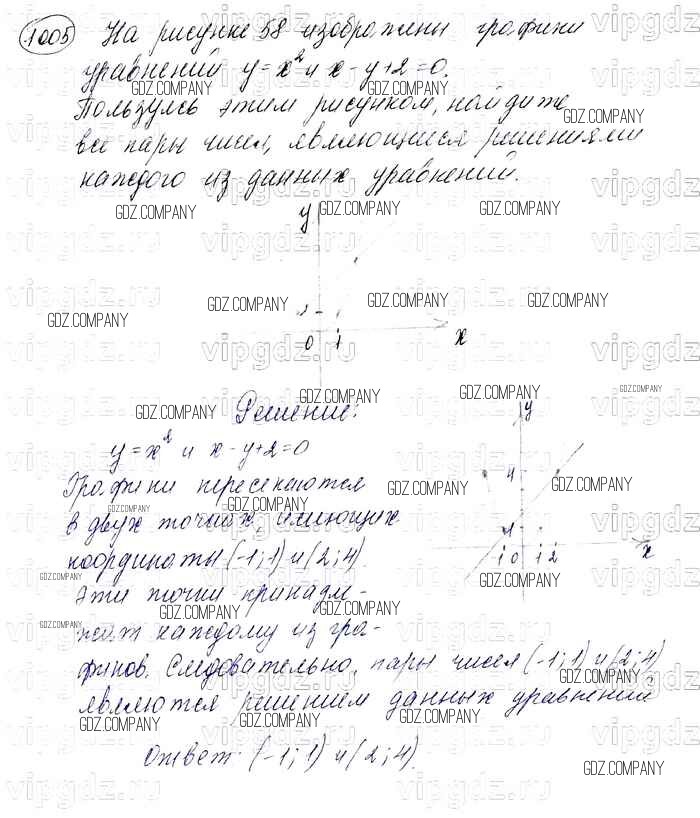 1005 На рисунке 58 изображены графики
уравнений y = x² и x - y + 2 = 0.
Пользуясь этим рисунком, найдите
все пары чисел, являющиеся решениями
каждого из данных уравнений.
y
0 1 x
Решение:
y = x² и x - y + 2 = 0
Графики пересекаются
в двух точках, имеющих
координаты (-1; 1) и (2; 4).
Эти точки принадле-
жат каждому из гра-
фиков. Следовательно, пары чисел (-1; 1) и (2; 4)
являются решением данных уравнений.
y
4
1
-1 0 1 2 x
Ответ: (-1; 1) и (2; 4).
vipgdz.ru
GDZ.COMPANY